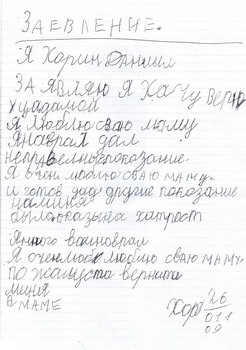 ЗАЕВЛЕНИЕ.
Я Хорин Даниил
ЗАЯВЛЯЮ Я ХАЧУ ВЕРН
Я ЛЮБЛЮ СВАЮ МАМУ
Янаврал дал
неправелные показание.
Я очен люблю сваю маму.
и готов дад другие показание
была оказына хитрост
Я много вашнаврал
Я очен любл люблю сваю маму.
по жалуста верните
миня
в МАМЕ
Хор 26
011
09